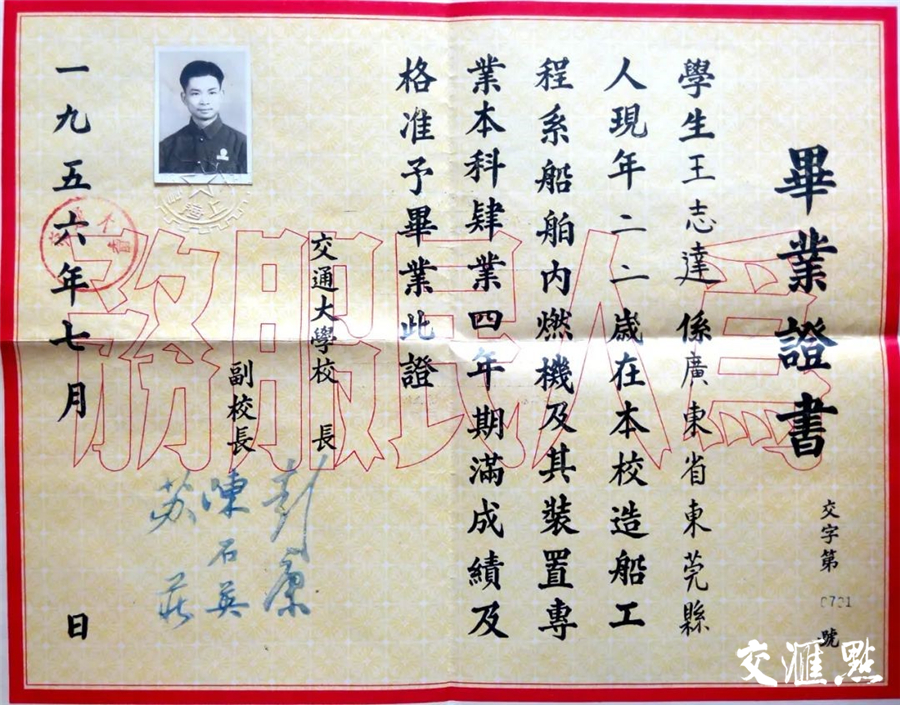 畢業證書
交字第0701號
學生王志達係廣東省東莞縣
人現年二二歲在本校造船工
程系船舶內燃機及其裝置專
業本科肄業四年期滿成績及
格准予畢業此證
交通大學校長
彭康
副校長
陳石英
苏莊
一九五六年七月 日
為人民服務
上海
交匯點